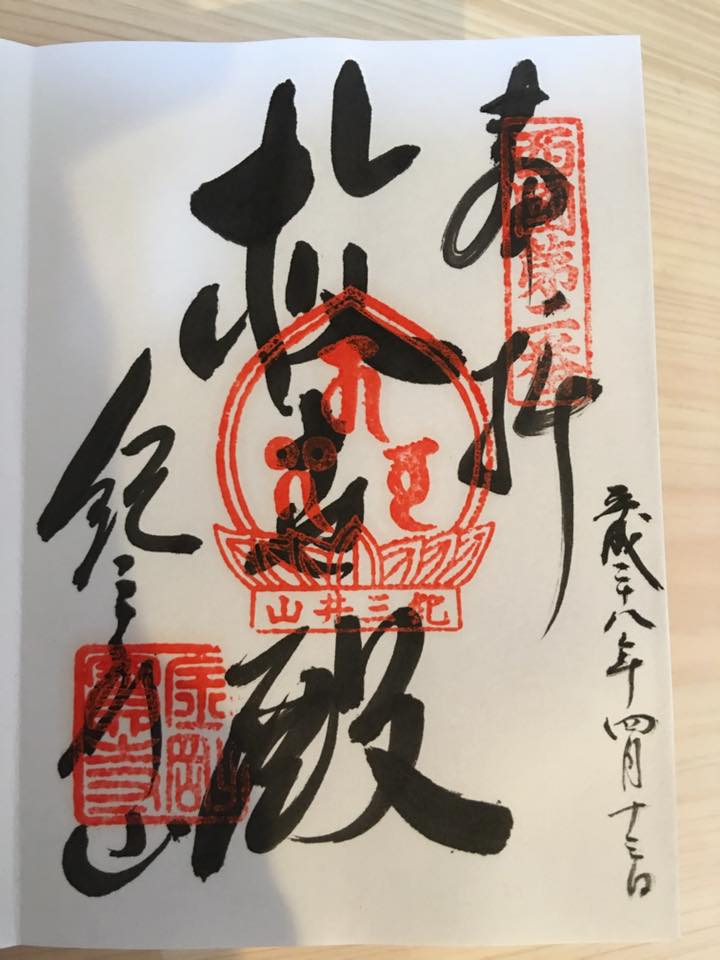 平成二十八年四月十三日
奉拝
西国第二番
救世殿
紀三井山
紀三井寺
金剛
寶寺